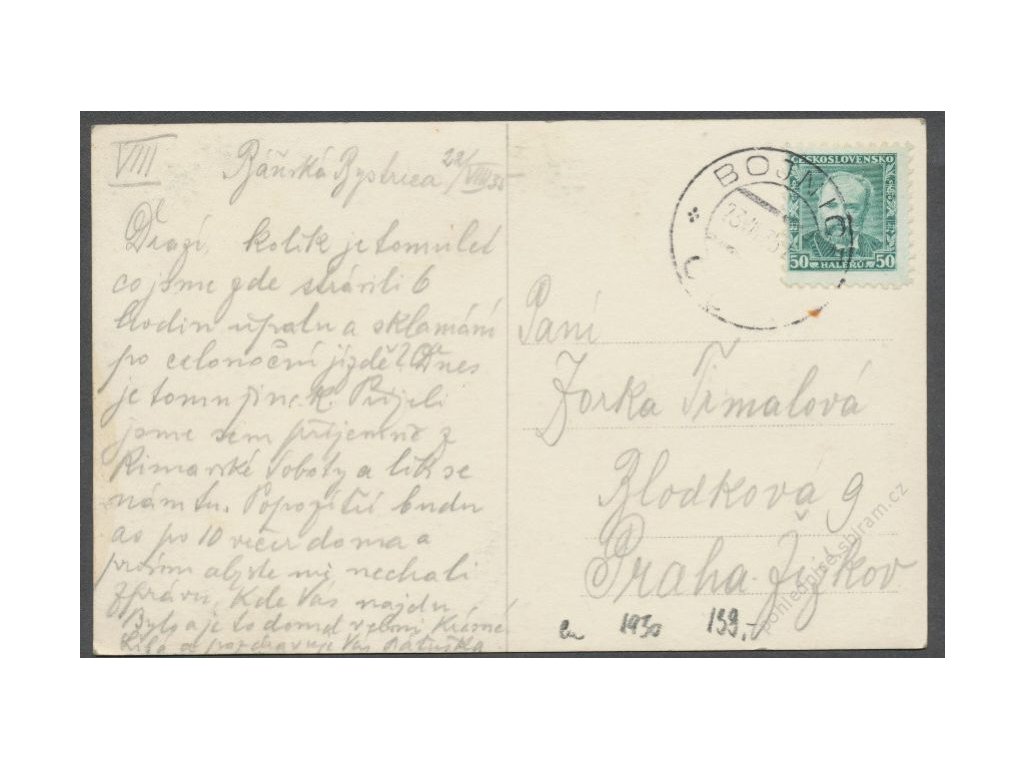 VIIII
Báňská Bystrica 22/VIII 35
Drazí, kolik je tomu let
co jsme zde strávili 6
hodin úpalu a sklamání
po celonoční jízdě? Dnes
je tomu jinak. Přijeli
jsme sem příjemně z
Rimavské Soboty a líbí se
nám tu. Popozítří budu
as po 10 večer doma a
prosím abyste mi nechali
zprávu, kde Vás najdu
Byla je to doma velmi krásné
Líbá a pozdravuje Vás
BOJNICE
23.VIII.35
ČESKOSLOVENSKO
50 HALÉŘŮ 50
Paní
Zorka Trmalová
Blodková 9
Praha-Žižkov
1930 139,-
pohlednice.sbiram.cz